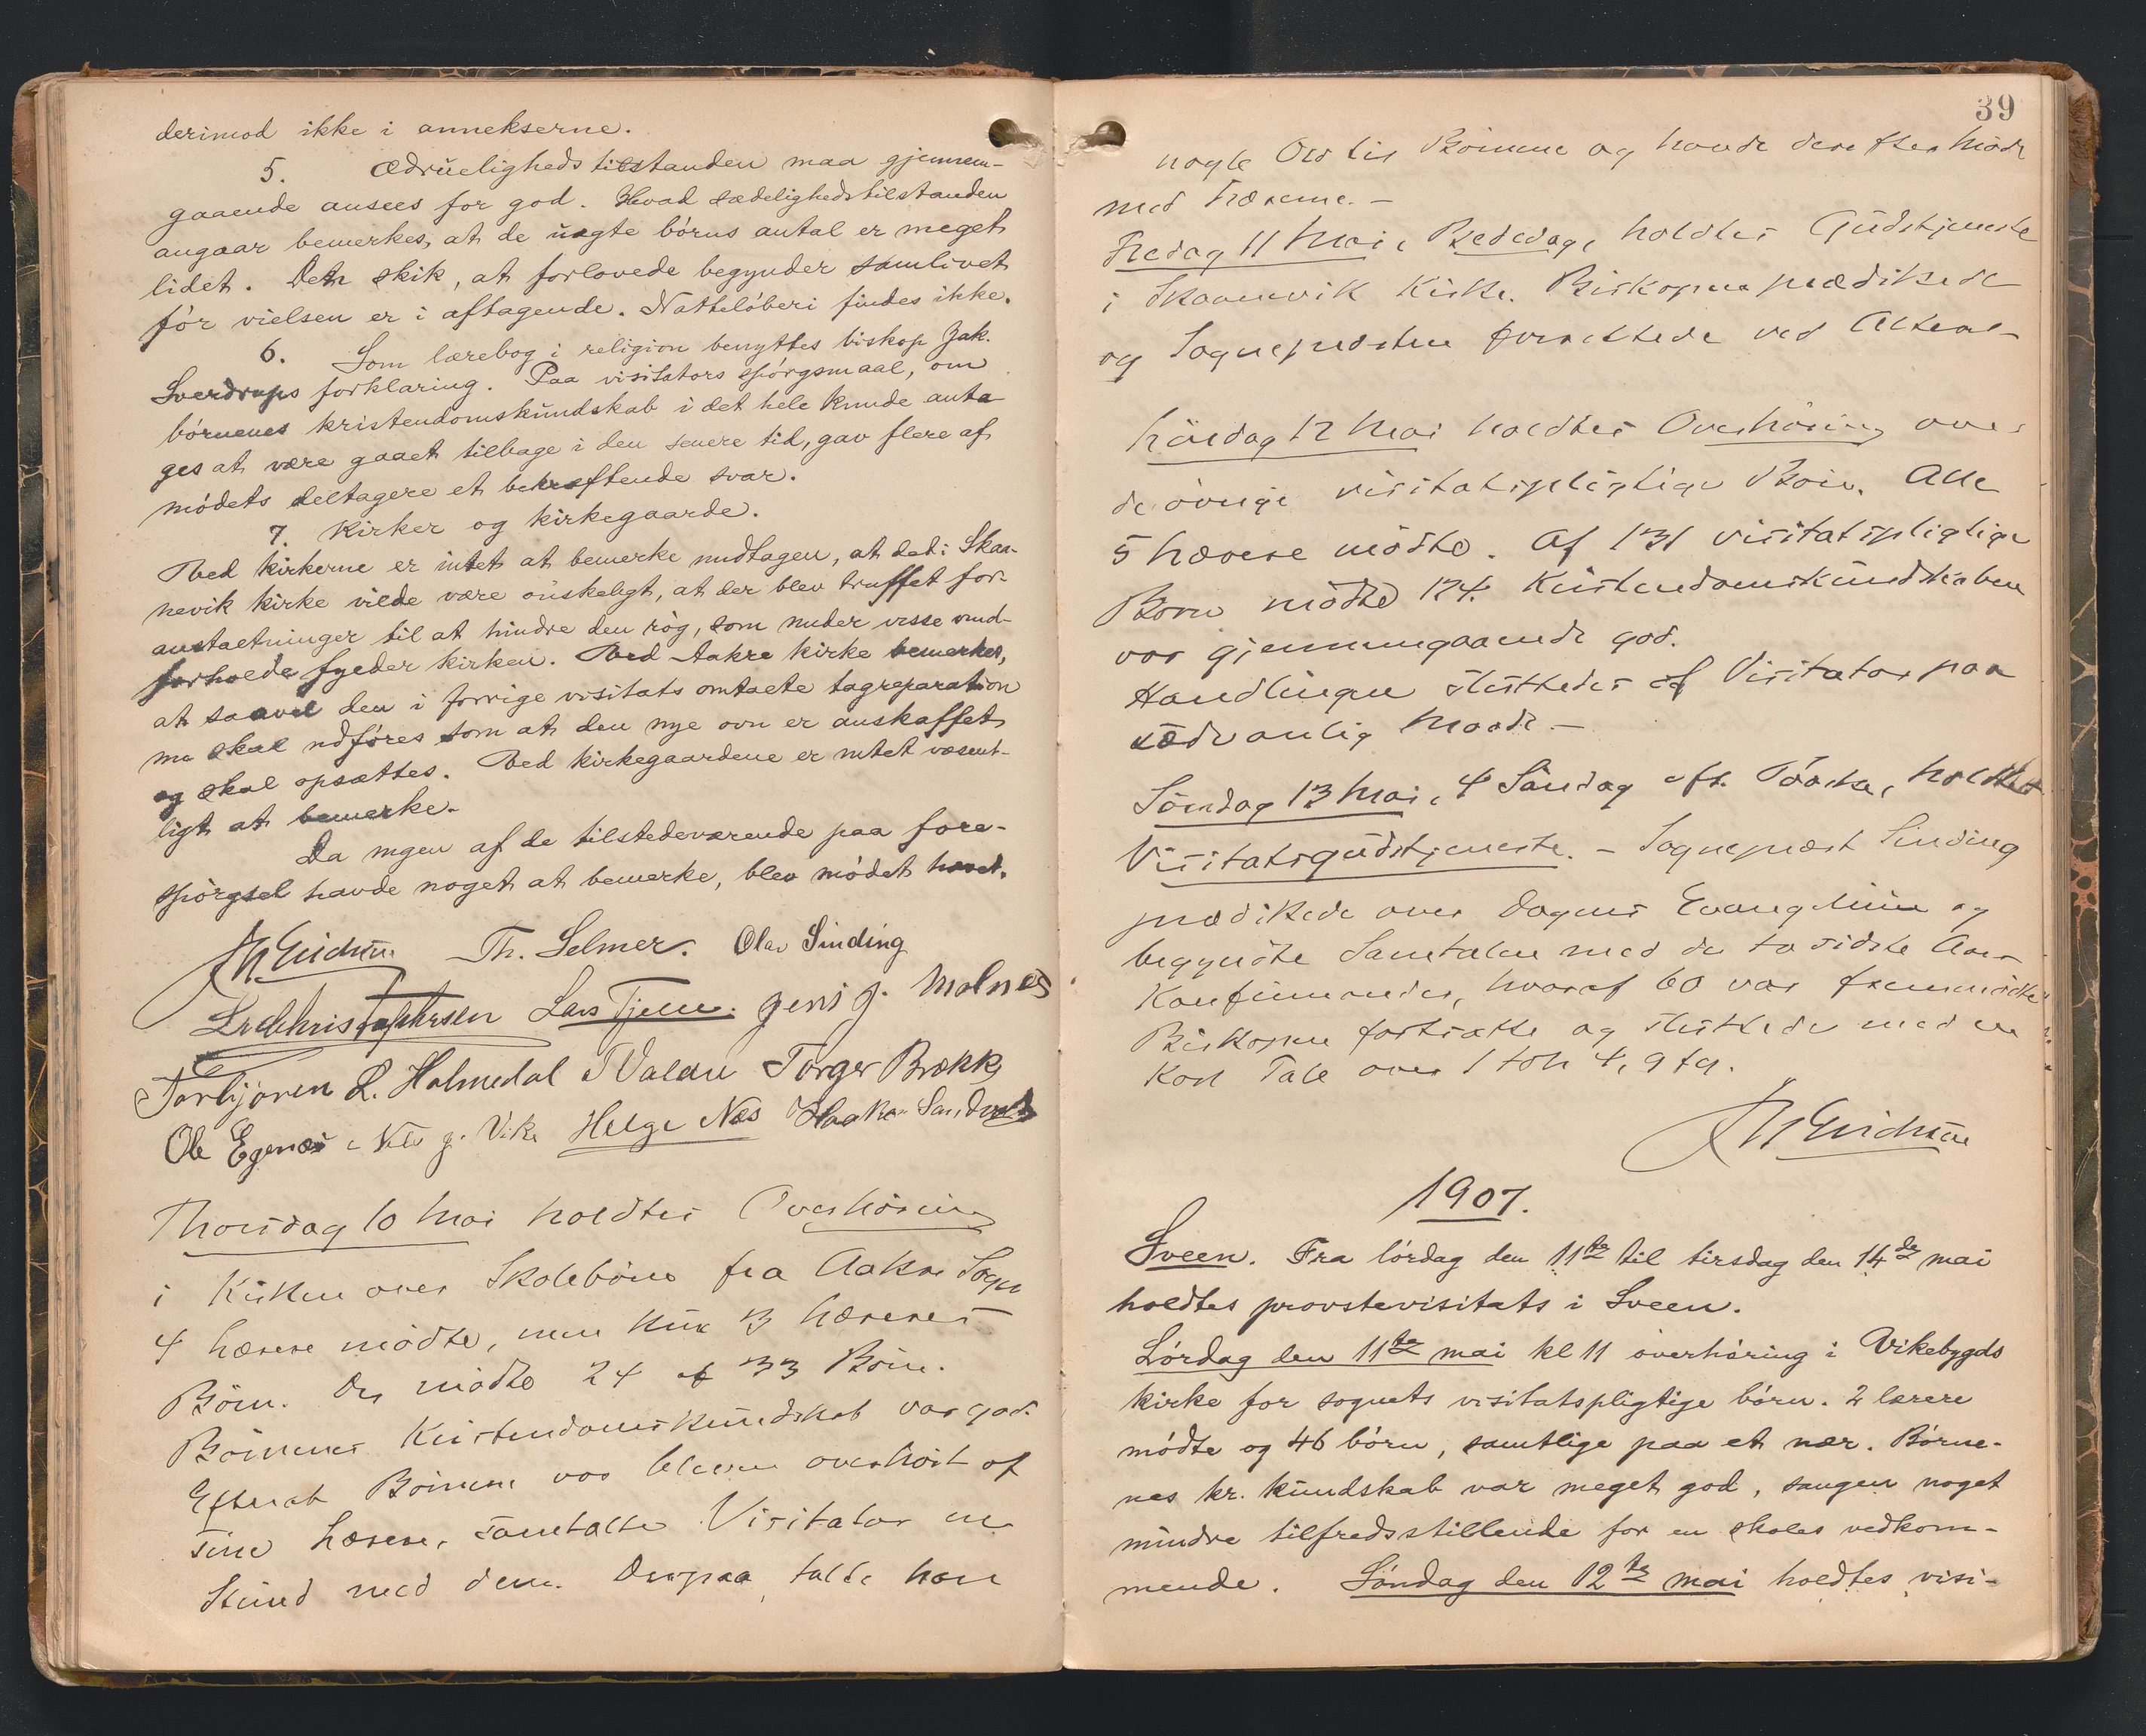 derimod ikke i annekserne.
5. Ædrueligheds tilstanden maa gjennem-
gaaende ansees for god. Hvad sædelighedstilstanden
angaar bemerkes, at de uægte børns antal er meget
lidet. Den skik, at forlovede begynder samlivet
før vielsen er i aftagende. Natteløberi findes ikke.
6. Som lærebog i religion benyttes biskop Jak.
Sverdrups forklaring. Paa visitators spørgsmaal, om
børnenes kristendomskundskab i det hele kunde anta
ges at være gaaet tilbage i den senere tid, gav flere af
mødets deltagere et bekræftende svar.
7. Kirker og kirkegaarde.
Ved kirkerne er intet at bemerke undtagen, at det i Skaa-
nevik kirke vilde være ønskeligt, at der blev truffet for-
anstaltninger til at hindre den røg, som under visse vind-
forholde fylder kirken. Ved Aakre kirke bemerkes,
at saavel den i forrige visitats omtalte tagreparation
nu skal udføres som at den nye ovn er anskaffet
og skal opsættes. Ved kirkegaardene er intet væsent-
ligt at bemerke.
Da ingen af de tilstedeværende paa fore-
spørgsel havde noget at bemerke, blev mødet hævet.
Th. Selmer. Olav Sinding
Christophersen Lars Tjelle. Jens J. Molnes
Torbjøren L. Holmedal T Valen Torger Brække
Ole Egenæs Nils J. Vike Helge Nes Haakon Sandvold
Thorsdag 10 Mai holdtes Overhøring
i Kirken over Skolebørn fra Aakre Sogn
4 Lærere mødte, men kun 3 Læreres
Børn. Der mødte 24 af 33 Børn.
Børnenes Kristendomskundskab var god.
Efterat Børnene var bleven overhørt af
sine Lærere, samtalte Visitator en
Stund med dem. Derpaa talte han
39
nogle Ord til Børnene og havde derefter Møde
med Lærerne. –
Fredag 11 Mai, Bededag, holdtes Gudstjeneste
i Skaanevik Kirke. Biskopen prædikede
og Sognepresten forrettede ved Alteret
Lørdag 12 Mai holdtes Overhøring over
de øvrige visitatspligtige Børn. Alle
5 Lærere mødte. Af 131 visitatspligtige
Børn mødte 124. Kristendomskundskaben
var gjennemgaaende god.
Handlingen sluttedes af Visitator paa
sædvanlig Maade. –
Søndag 13 Mai, 4 Søndag eft. Paaske, holdtes
Visitatsgudstjeneste. – Sogneprest Sinding
prædikede over Dagens Evangelium og
begyndte Samtalen med de to sidste Aars
Konfirmander, hvoraf 60 var fremmødte
Biskopen fortsatte og sluttede med en
kort Tale over 1 Joh 4, 9 fg.
1907.
Sveen. Fra lørdag den 11te til tirsdag den 14de mai
holdtes provstevisitats i Sveen.
Lørdag den 11te mai kl 11 overhøring i Vikebygds
kirke for sognets visitatspligtige børn. 2 lærere
mødte og 46 børn, samtlige paa et nær. Børne-
nes kr. kundskab var meget god, sangen noget
mindre tilfredsstillende for en skoles vedkom-
mende. Søndag den 12te mai holdtes visi-